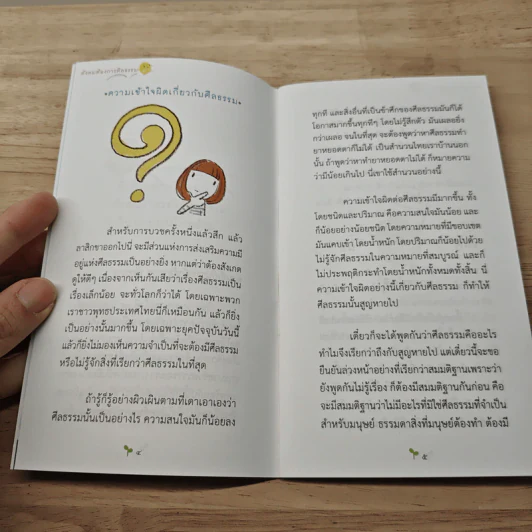 สังคมต้องการศีลธรรม
•ความเข้าใจผิดเกี่ยวกับศีลธรรม•
สำหรับการบวชครั้งหนึ่งแล้วสึก แล้ว
ลาสิกขาออกไปนี้ จะมีส่วนแห่งการส่งเสริมความมี
อยู่แห่งศีลธรรมเป็นอย่างยิ่ง หากแต่ว่าต้องสังเกต
ดูให้ดีๆ เนื่องจากเห็นกันเสียว่าเรื่องศีลธรรมเป็น
เรื่องเล็กน้อย จะทั่วโลกก็ว่าได้ โดยเฉพาะพวก
เราชาวพุทธประเทศไทยนี่ก็เหมือนกัน แล้วก็ยิ่ง
เป็นอย่างนั้นมากขึ้น โดยเฉพาะยุคปัจจุบันวันนี้
แล้วก็ยิ่งไม่มองเห็นความจำเป็นที่จะต้องมีศีลธรรม
หรือไม่รู้จักสิ่งที่เรียกว่าศีลธรรมในที่สุด
ถ้ารู้ก็รู้อย่างผิวเผินตามที่เดาเอาเองว่า
ศีลธรรมนั้นเป็นอย่างไร ความสนใจมันก็น้อยลง
๔
ทุกที และสิ่งอื่นที่เป็นข้าศึกของศีลธรรมมันก็ได้
โอกาสมากขึ้นทุกทีๆ โดยไม่รู้สึกตัว มันเผลอยิ่ง
กว่าเผลอ จนในที่สุด จะต้องพูดว่าหาศีลธรรมทำ
ยาหยอดตาก็ไม่ได้ เป็นสำนวนไทยเราบ้านนอก
นั้น ถ้าพูดว่าหาทำยาหยอดตาไม่ได้ ก็หมายความ
ว่ามีน้อยเกินไป นี่เขาใช้สำนวนอย่างนี้
ความเข้าใจผิดต่อศีลธรรมมีมากขึ้น ทั้ง
โดยชนิดและปริมาณ คือความสนใจมันน้อย และ
ก็น้อยอย่างน้อยชนิด โดยความหมายที่มีขอบเขต
มันแคบเข้า โดยน้ำหนัก โดยปริมาณก็น้อยไปด้วย
ไม่รู้จักศีลธรรมในความหมายที่สมบูรณ์ และก็
ไม่ประพฤติกระทำโดยน้ำหนักทั้งหมดทั้งสิ้น นี่
ความเข้าใจผิดอย่างนี้เกี่ยวกับศีลธรรม ก็ทำให้
ศีลธรรมนั้นสูญหายไป
เดี๋ยวก็จะได้พูดกันว่าศีลธรรมคืออะไร
ทำไมจึงเรียกว่าถึงกับสูญหายไป แต่เดี๋ยวนี้จะขอ
ยืนยันล่วงหน้าอย่างที่เรียกว่าสมมติฐานเพราะว่า
ยังพูดกันไม่รู้เรื่อง ก็ต้องมีสมมติฐานกันก่อน คือ
จะมีสมมติฐานว่าไม่มีอะไรที่มิใช่ศีลธรรมที่จำเป็น
สำหรับมนุษย์ ธรรมดาสิ่งที่มนุษย์ต้องทำ ต้องมี
๕